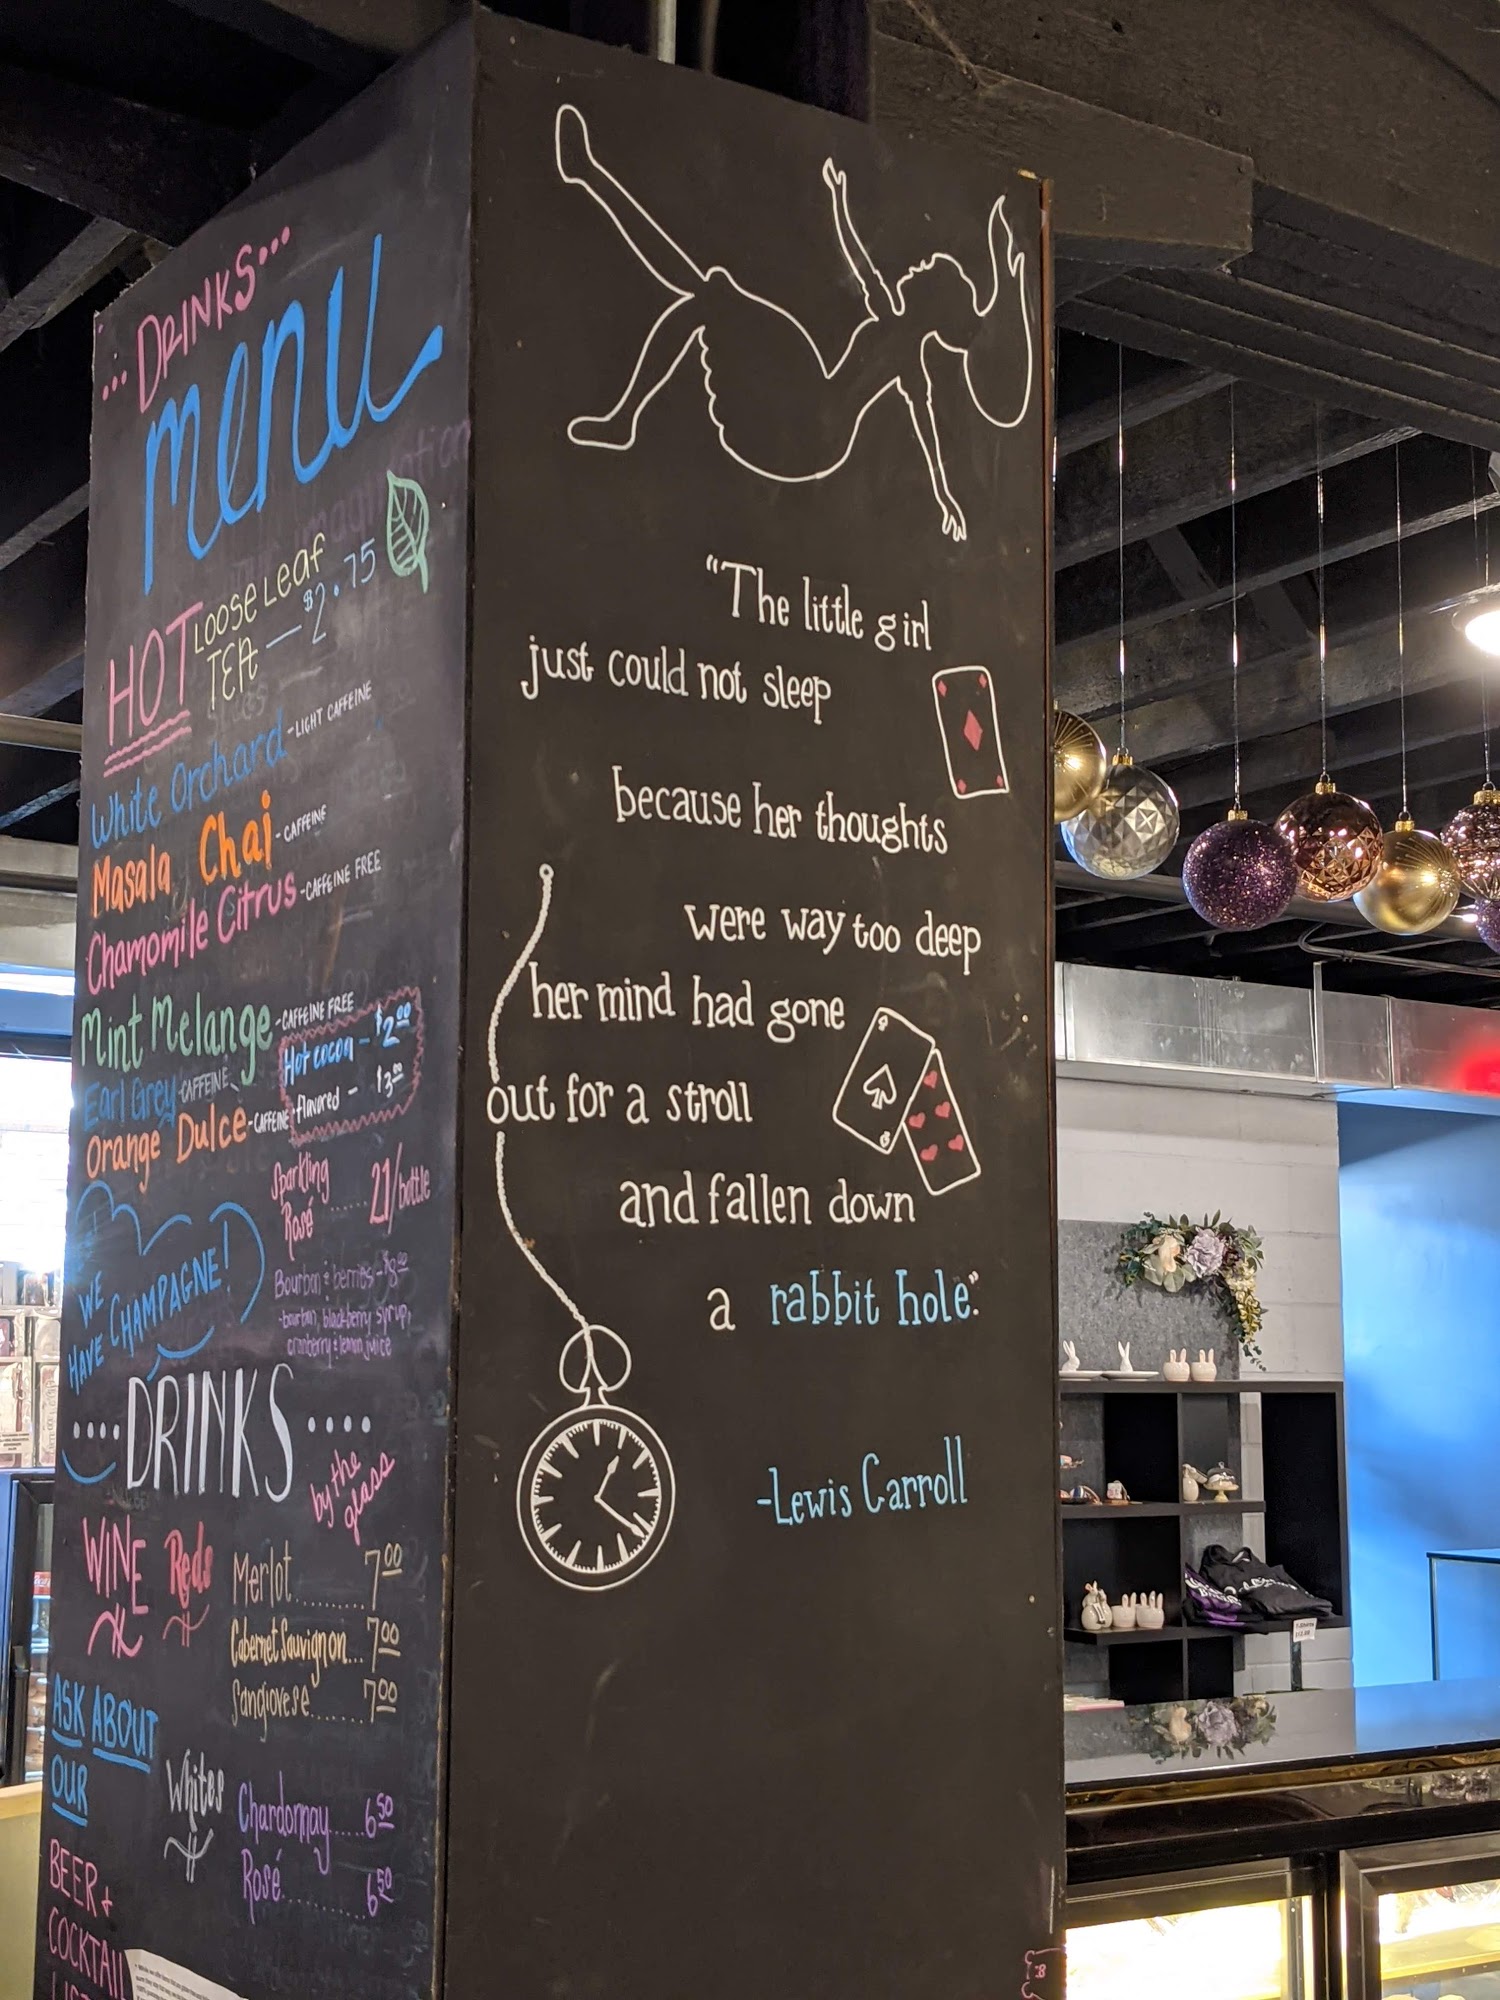 ...DRINKS...
menu
HOT LOOSE LEAF
TEA — $2.75
White Orchard -LIGHT CAFFEINE
Masala Chai -CAFFEINE
Chamomile Citrus -CAFFEINE FREE
Mint Melange -CAFFEINE FREE
Earl Grey -CAFFEINE
Orange Dulce -CAFFEINE
Hot cocoa - $2.00
flavored - $3.00
Sparkling
Rosé ...... 21/bottle
WE
HAVE CHAMPAGNE!
Bourbon & berries - $8.00
-bourbon, blackberry syrup,
cranberry & lemon juice
....DRINKS....
by the
glass
WINE
Reds
Merlot.......... 7.00
Cabernet Sauvignon... 7.00
Sangiovese....... 7.00
ASK ABOUT
OUR
BEER +
COCKTAIL
Whites
Chardonnay..... 6.50
Rosé.......... 6.50
"The little girl
just could not sleep
because her thoughts
were way too deep
her mind had gone
out for a stroll
and fallen down
a rabbit hole."
-Lewis Carroll